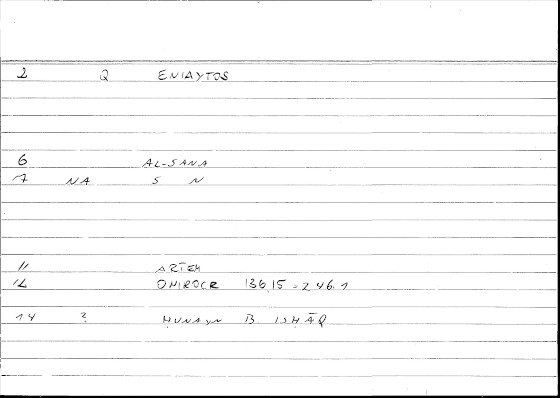 2 Q ENIAYTOS
6 AL-SANA
7 NA S N
11 ARTEM
12 ONIROCR 136,15 = 246.1
14 ? ḤUNAYN B. ISḤĀQ